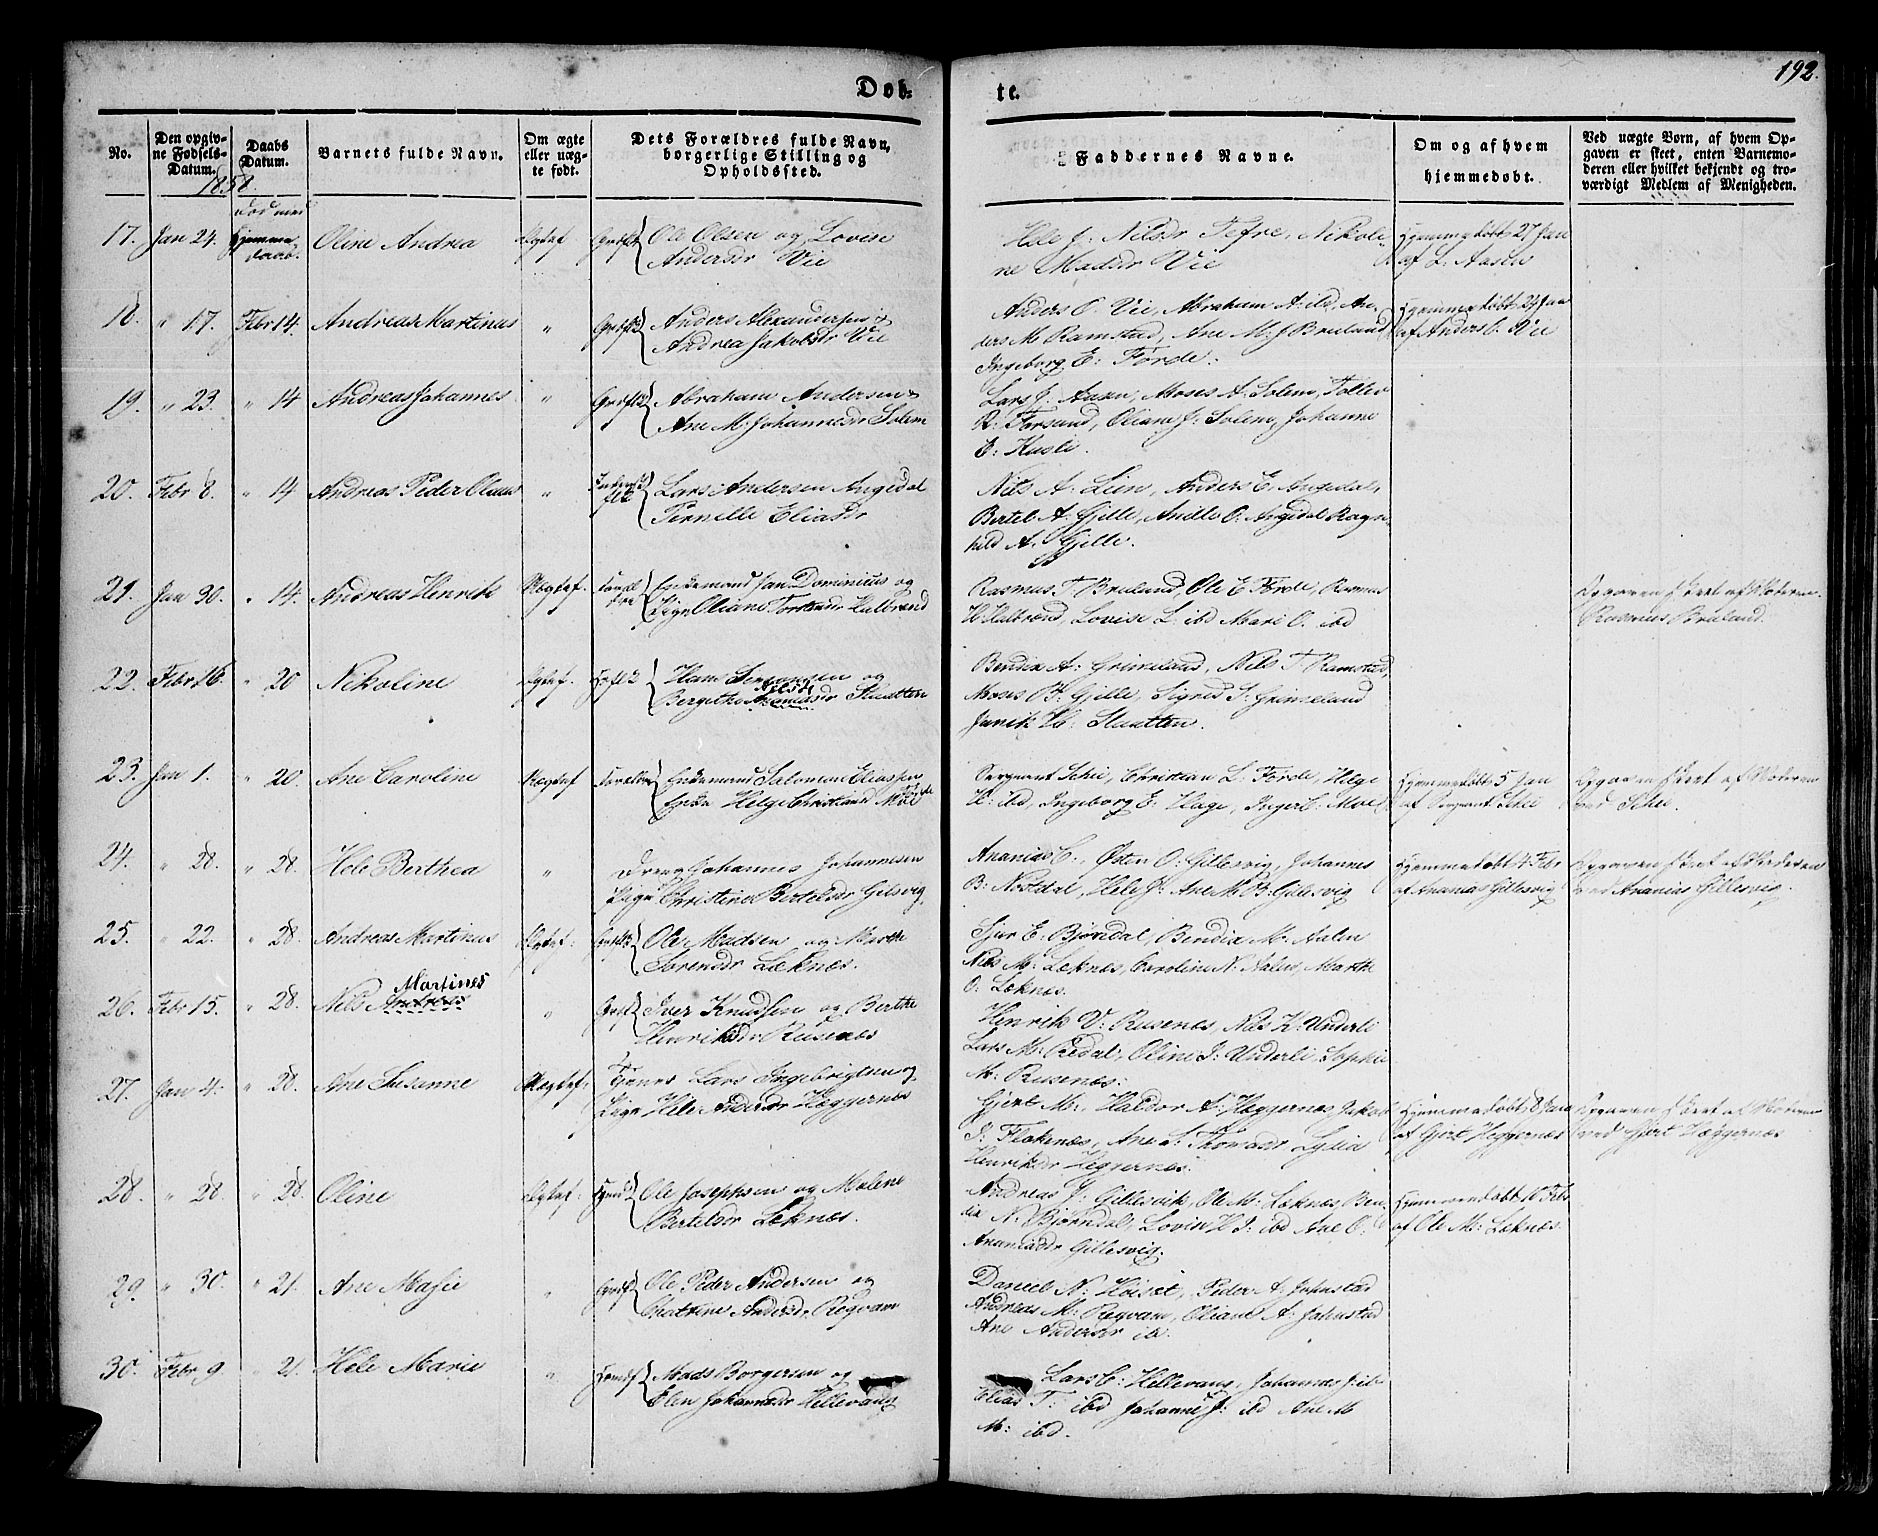 192.
Døb-
te.
No.
Den opgiv-
ne Fødsels-
Datum.
Daabs
Datum.
Barnets fulde Navn.
Om ægte
eller uæg-
te født.
Dets Forældres fulde Navn,
borgerlige Stilling og
Opholdssted.
Faddernes Navne.
Om og af hvem
hjemmedøbt.
Ved uægte Børn, af hvem Op-
gaven er skeet, enten Barnemo-
deren eller hvilket bekjendt og tro-
værdigt Medlem af Menigheden.
1858.
død med
17. Jan 24. Hjemme
daab. Oline Andrea Ægtef. Ole Olsen og Lovise
Andersdr Vie
Hele J: Nilsdr Tefre, Nikoli-
ne Madsdr Vie
Hjemmedøbt 27 Jan
af L. Aasen
18. " 17. Febr 14. Andreas Martinus " Anders Alexandersen &
Andrea Jakobsdr Vie
Anders O. Vie, Abraham A: ibd, An-
ders M Ramstad, Ane M: J Bruland
Ingeborg E: Førde.
Hjemmedøbt 24 Jan
af Anders O. Vie
19. " 23. " 14 Andreas Johannes " Abraham Andersen &
Ane M: Johannesdr Solem
Lars J. Aasen, Moses A. Solem, Tollev
R: Farsund, Oliane J: Solem, Johanne
E: Kusli.
20. Febr 8. " 14 Andreas Peder Olaus " Lars Andersen Angedal
Pernille Eliasdr
Nils A: Lien, Anders E. Angedal,
Bertel A. Gjelle, Anders O. Angedal Ragn-
hild A. Gjelle.
21. Jan 30. " 14. Andreas Henrik Uægtef. Enkemand Jan Dominicus og
Pige Oliane Halbrend
Rasmus T. Bruland, Ole E Førde, Rasmus
H Halbrend, Lovise L. ibd Mari O. ibd
Opgaven skeet af Moderen
Rasmus Bruland.
22. Febr 16. " 20 Nikoline Ægtef. Hans Sørensen og
Nilsdr
Bergithe Ananiasdr Slaatten
Bendix A: Grimeland, Nils T. Ramstad,
Moses B: Gjelle, Sigrid S: Grimeland
H: Slaatten.
23. Jan 1. " 20. Ane Caroline Uægtef Enkemand Salomon Eliassen Førde
Enke Helge Christiansdr Moe
Sergeant Schei, Christian L. Førde, Helge
H: ibd, Ingeborg E: Hage, Inger C. Moe
Hjemmedøbt 5 Jan
af Sergeant Schei
Opgaven skeet af Moderen
ved Schei.
24. " 28. " 28. Hele Berthea " Dreng Johannes Johannesen
Pige Christine Bertelsdr Gilsvig
Ananias C:, Østen O: Gillesvig, Johannes
B: Nostdal, Hele J: Ane M B: Gillesvig
Hjemmedøbt 4 Febr
af Ananias Gillesvig
Opgaven skeet af Faderen
ved Ananias Gillesvig.
25. " 22. " 28. Andreas Martinus Ægtef: Ole Madsen og Marthe
Sørensdr Leknes.
Sjur E. Bjørndal, Bendix M: Aalen
Nils M: Leknes, Caroline N. Aalen, Marthe
O: Leknes.
26. Febr 15. " 28. Nils Andreas Martines " Iver Knudsen og Berthe
Henriksdr Rusenes
Henrik V: Rusenes, Nils K. Underli
Lars M: Redal, Oline I: Underli Sophie
M: Rusenes.
27. Jan 4. " 28. Ane Susanne Uægtef: Tjener Lars Ingebrigtsen og
Pige Hele Andersdr Heggernes
Gjert M:, Haldor A: Heggernes, Jakob
I: Flokenes, Ane S: Thomasdr Lydia
Henriksdr Hegnernes.
Hjemmedøbt 8 Jan
af Gjert Heggernes
Opgaven skeet af Moderen
ved Gjert Heggernes
28. " 28. " 28. Oline Ægtef: Ole Josephsen og Malene
Bertelsdr Leknes.
Andreas J: Gillesvik, Ole M: Leknes, Ben-
dix N: Bjørndal, Lovise H I: ibd Ane O:
Ananiasdr Gillesvig.
Hjemmedøbt 10 Febr
af Ole M: Leknes
29. " 30. " 21. Ane Masie " Ole Peder Andersen og
Chatrine Andersdr Rogvam
Daniel N: Høiset, Peder A: Johnstad
Andreas M: Rogvam, Oliane A: Johnstad
Ane Andersdr ib.
30. Febr 9 " 21. Hele Marie " Mads Borgersen og
Elen Johannesdr Hellevang
Lars C: Hellevang, Johannes J: ib
Elias T: ibd Johanne J: ibd Ane M
M: ibd.